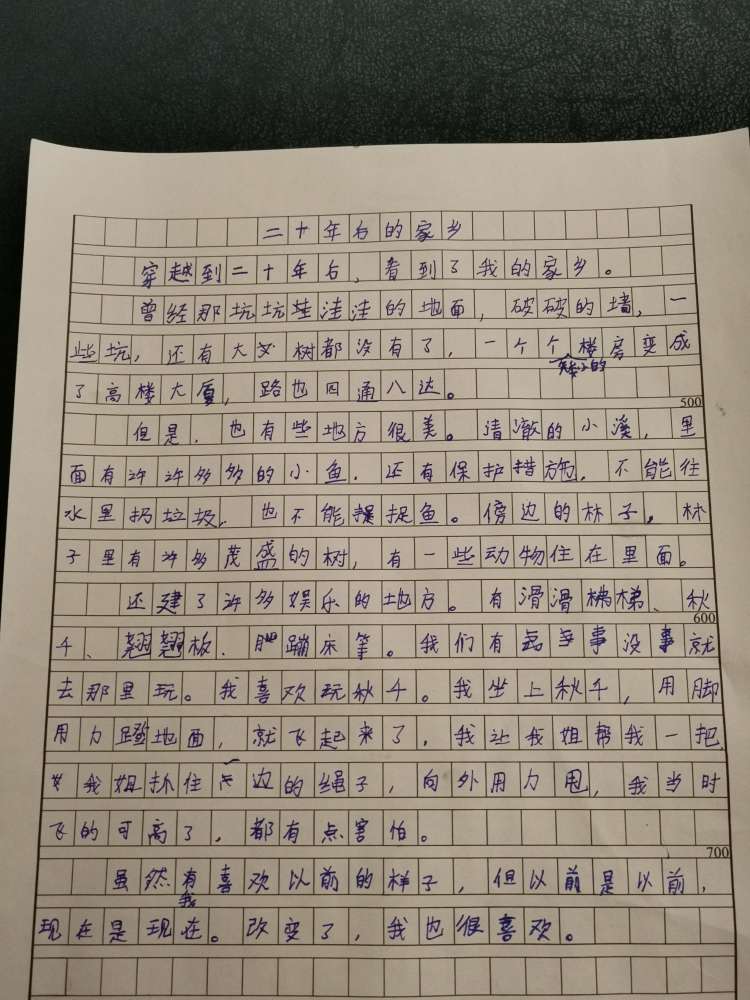 二十年后的家乡
穿越到二十年后，看到了我的家乡。
曾经那坑坑洼洼洼的地面，破破的墙，一
些坑，还有大叉树都没有了，一个个矮小的楼房变成
了高楼大厦，路也四通八达。
500
但是，也有些地方很美。清澈的小溪，里
面有许许多多的小鱼，还有保护措施，不能往
水里扔垃圾，也不能捉鱼。傍边的林子，林
子里有许多茂盛的树，有一些动物住在里面。
还建了许多娱乐的地方。有滑滑梯、秋
600
千、翘翘板、蹦床等。我们有事没事就
去那里玩。我喜欢玩秋千。我坐上秋千，用脚
用力蹬地面，就飞起来了，我让我姐帮我一把，
我姐抓住一边的绳子，向外用力甩，我当时
飞的可高了，都有点害怕。
700
虽然我喜欢以前的样子，但以前是以前，
现在是现在。改变了，我也很喜欢。